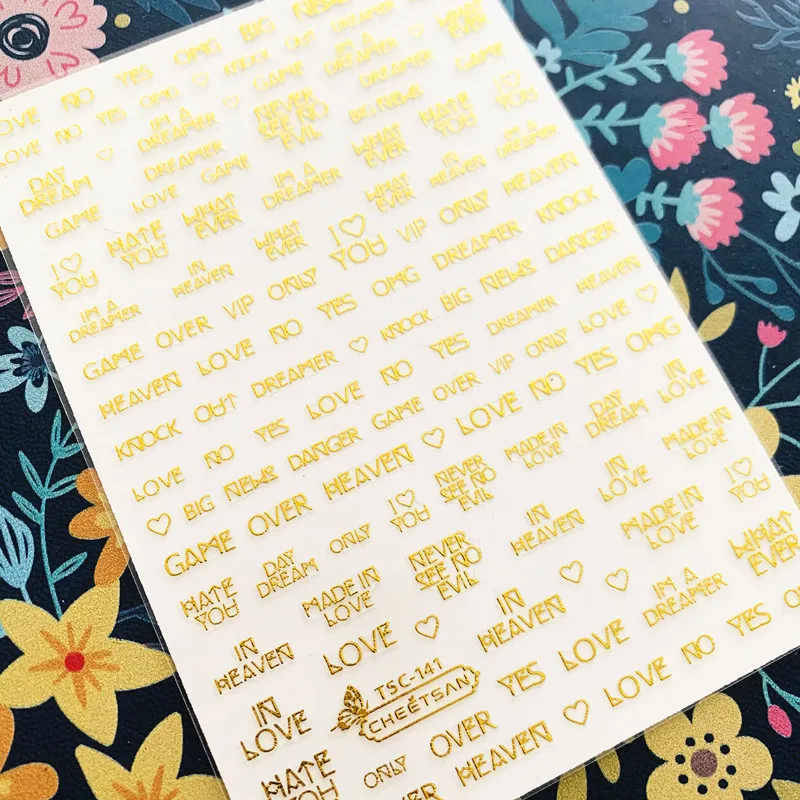 LOVE NO YES OMG BIG NEWS
LOVE NO YES OMG ♡ KNOCK OUT DREAMER WHAT EVER
I'M A DREAMER GAME I'M A DREAMER GAME
DAY DREAM ♡ DREAMER NEVER SEE NO EVIL BIG NEWS DREAMER
GAME LOVE GAME I'M A DREAMER WHAT EVER HATE YOU I ♡ YOU
I ♡ YOU HATE YOU WHAT EVER WHAT EVER IN HEAVEN I'M A DREAMER
I'M A DREAMER IN HEAVEN WHAT EVER I ♡ YOU VIP ONLY HEAVEN
GAME OVER VIP ONLY YES OMG DREAMER KNOCK
HEAVEN LOVE NO YES OMG BIG NEWS DANGER
KNOCK OUT DREAMER ♡ KNOCK DREAMER HEAVEN
LOVE NO YES LOVE NO YES VIP ONLY LOVE ♡
♡ BIG NEWS DANGER GAME OVER LOVE NO YES OMG
GAME OVER HEAVEN ♡ DAY DREAM IN LOVE
HATE YOU DAY DREAM ONLY I ♡ YOU NEVER SEE NO EVIL MADE IN LOVE IN LOVE MADE IN LOVE
MADE IN LOVE NEVER SEE NO EVIL IN HEAVEN MADE IN LOVE I ♡ YOU
IN HEAVEN LOVE ♡ IN HEAVEN ♡ ♡ I'M A DREAMER WHAT EVER
IN LOVE TSC-141 CHEETSAN YES LOVE
HATE YOU ONLY OVER HEAVEN ♡ LOVE NO YES